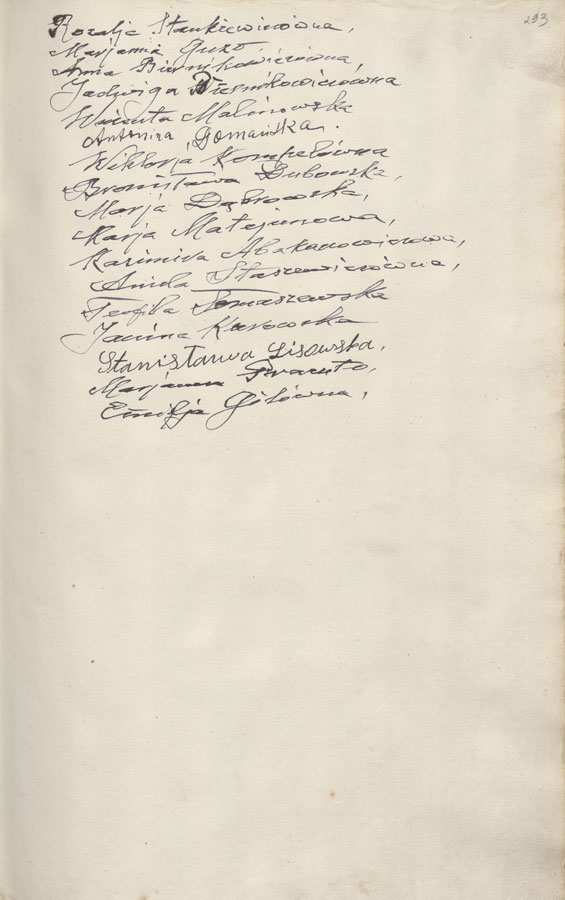 293
Rozalja Stankiewiczówna,
Marjanna Guzo,
Anna Biernikowiczówna,
Jadwiga Biernikowiczówna
Malinowska
Antonina Domańska.
Wiktorja Kompełówna
Bronisława Dubowska,
Marja Dąbrowska,
Marja Matejunowa,
Kazimira Abakanowiczowa,
Aniela Staszewiczówna,
Teofila Tomaszewska
Janina Kurowska
Stanisława Lisowska,
Marjanna
Emilja Gólówna,